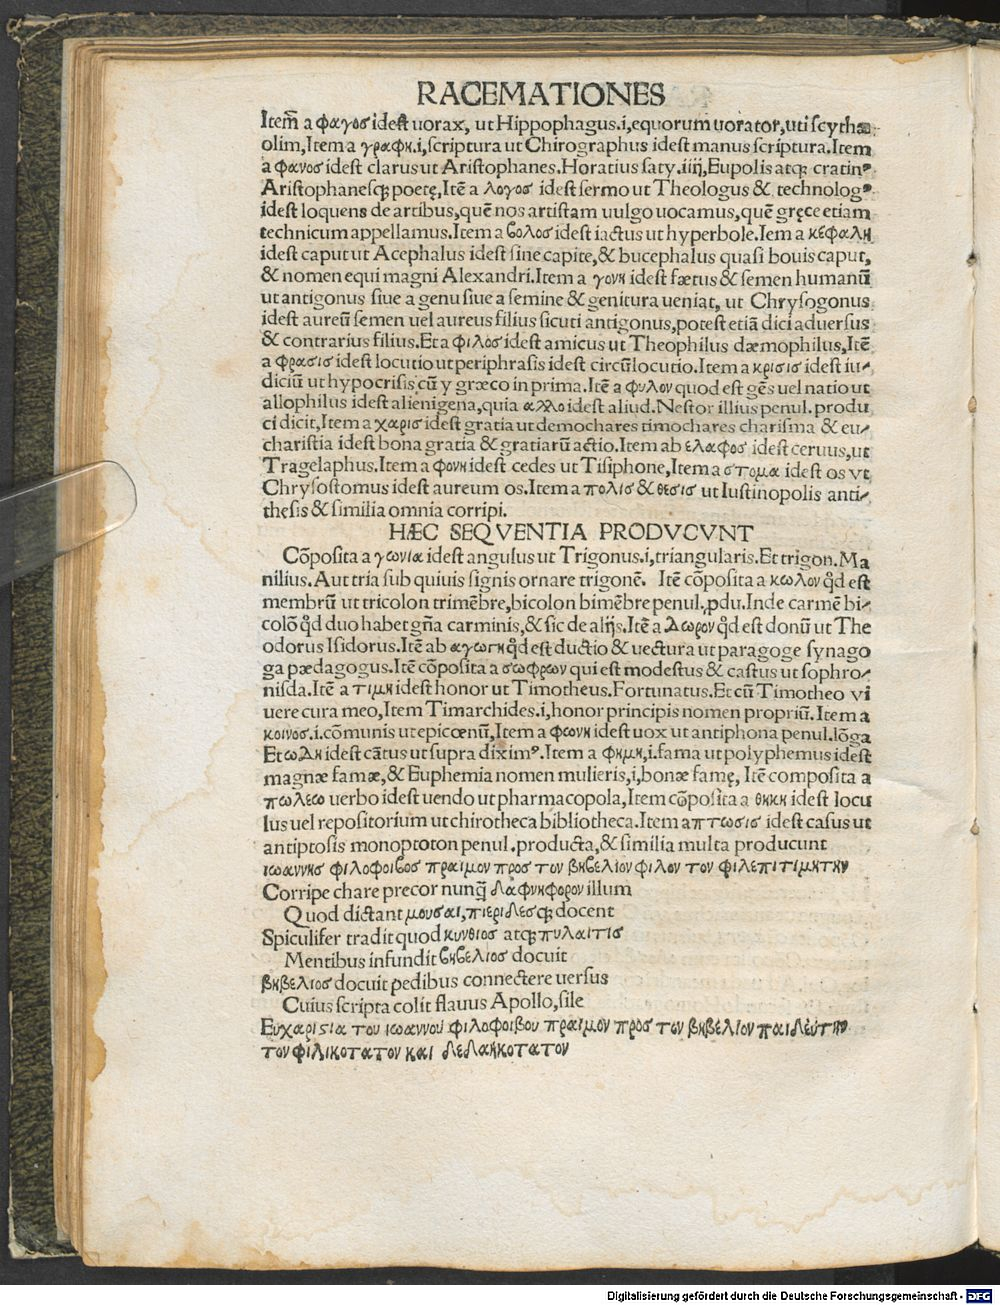 RACEMATIONES
Item̃ a φαγοσ idest uorax, ut Hippophagus.i,equorum uorator,uti scythæ
olim,Item a γραφη.i,scriptura ut Chirographus idest manus scriptura.Item
a φανοσ idest clarus ut Aristophanes.Horatius saty.iiij,Eupolis atqꝫ cratinꝰ
Aristophanesqꝫ poetę,Itē a λογοσ idest sermo ut Theologus & technologꝰ
idest loquens de artibus,quē nos artistam uulgo uocamus,quē gręce etiam
technicum appellamus.Item a βολοσ idest iactus ut hyperbole.Iem a κεφαλη
idest caput ut Acephalus idest sine capite,& bucephalus quasi bouis caput,
& nomen equi magni Alexandri.Item a γονη idest fætus & semen humanū
ut antigonus siue a genu siue a semine & genitura ueniat, ut Chrysogonus
idest aureū semen uel aureus filius sicuti antigonus,potest etiā dici aduersus
& contrarius filius.Et a φιλοσ idest amicus ut Theophilus dæmophilus,Itē
a φρασισ idest locutio ut periphrasis idest circūlocutio.Item a κρισισ idest iu-
diciū ut hypocrisis cū y græco in prima.Itē a φυλον quod est gēs uel natio ut
allophilus idest alienigena,quia αλλο idest aliud.Nestor illius penul. produ
ci dicit,Item a χαρισ idest gratia ut demochares timochares charisma & eu-
charistia idest bona gratia & gratiarū actio.Item ab ελαφοσ idest ceruus,ut
Tragelaphus.Item a φονη idest cedes ut Tisiphone,Item a στομα idest os vt
Chrysostomus idest aureum os.Item a πολισ & θεσισ ut Iustinopolis anti-
thesis & similia omnia corripi.
HÆC SEQVENTIA PRODVCVNT
Cōposita a γωνια idest angulus ut Trigonus.i,triangularis.Et trigon.Ma
nilius.Aut tria sub quiuis signis ornare trigonē. Itē cōposita a κωλον qd̓ est
membrū ut tricolon trimēbre,bicolon bimēbre penul.ꝓdu.Inde carmē bi-
colō qd̓ duo habet gña carminis,& sic de alijs.Itē a δωρον qd̓ est donū ut The
odorus Isidorus.Itē ab αγωγη qd̓ est ductio & uectura ut paragoge synago
ga pædagogus.Itē cōposita a σωφρων qui est modestus & castus ut sophro-
nisda.Itē a τιμη idest honor ut Timotheus.Fortunatus.Et cū Timotheo vi
uere cura meo,Item Timarchides.i,honor principis nomen propriū.Item a
κοινοσ.i.cōmunis ut epicœnū,Item a φωνη idest uox ut antiphona penul.lōga
Et ωδη idest cātus ut supra diximꝰ.Item a φημη,i.fama ut polyphemus idest
magnæ famæ,& Euphemia nomen mulieris,i,bonæ famę, Itē composita a
πωλεω uerbo idest uendo ut pharmacopola,Item cōposita a θηκη idest locu
lus uel repositorium ut chirotheca bibliotheca.Item a πτωσισ idest casus ut
antiptosis monoptoton penul.producta,& similia multa producunt
ιωαννησ φιλοφοιβοσ πραιμον προσ τον βηβελιον φιλον τον φιλεπιτιμητην
Corripe chare precor nunq̄ δαφνηφορον illum
Quod dictant μουσαι,πιεριδεσqꝫ docent
Spiculifer tradit quod κυνθιοσ atqꝫ πυλαιτισ
Mentibus infundit βηβελιοσ docuit
βηβελιοσ docuit pedibus connectere uersus
Cuius scripta colit flauus Apollo,sile
Ευχαριςια του ιωαννου φιλοφοιβου πραιμον προσ τον βηβελιον παιδευτην
τον φιλικοτατον και δεδαηκοτατον
Digitalisierung gefördert durch die Deutsche Forschungsgemeinschaft - DFG